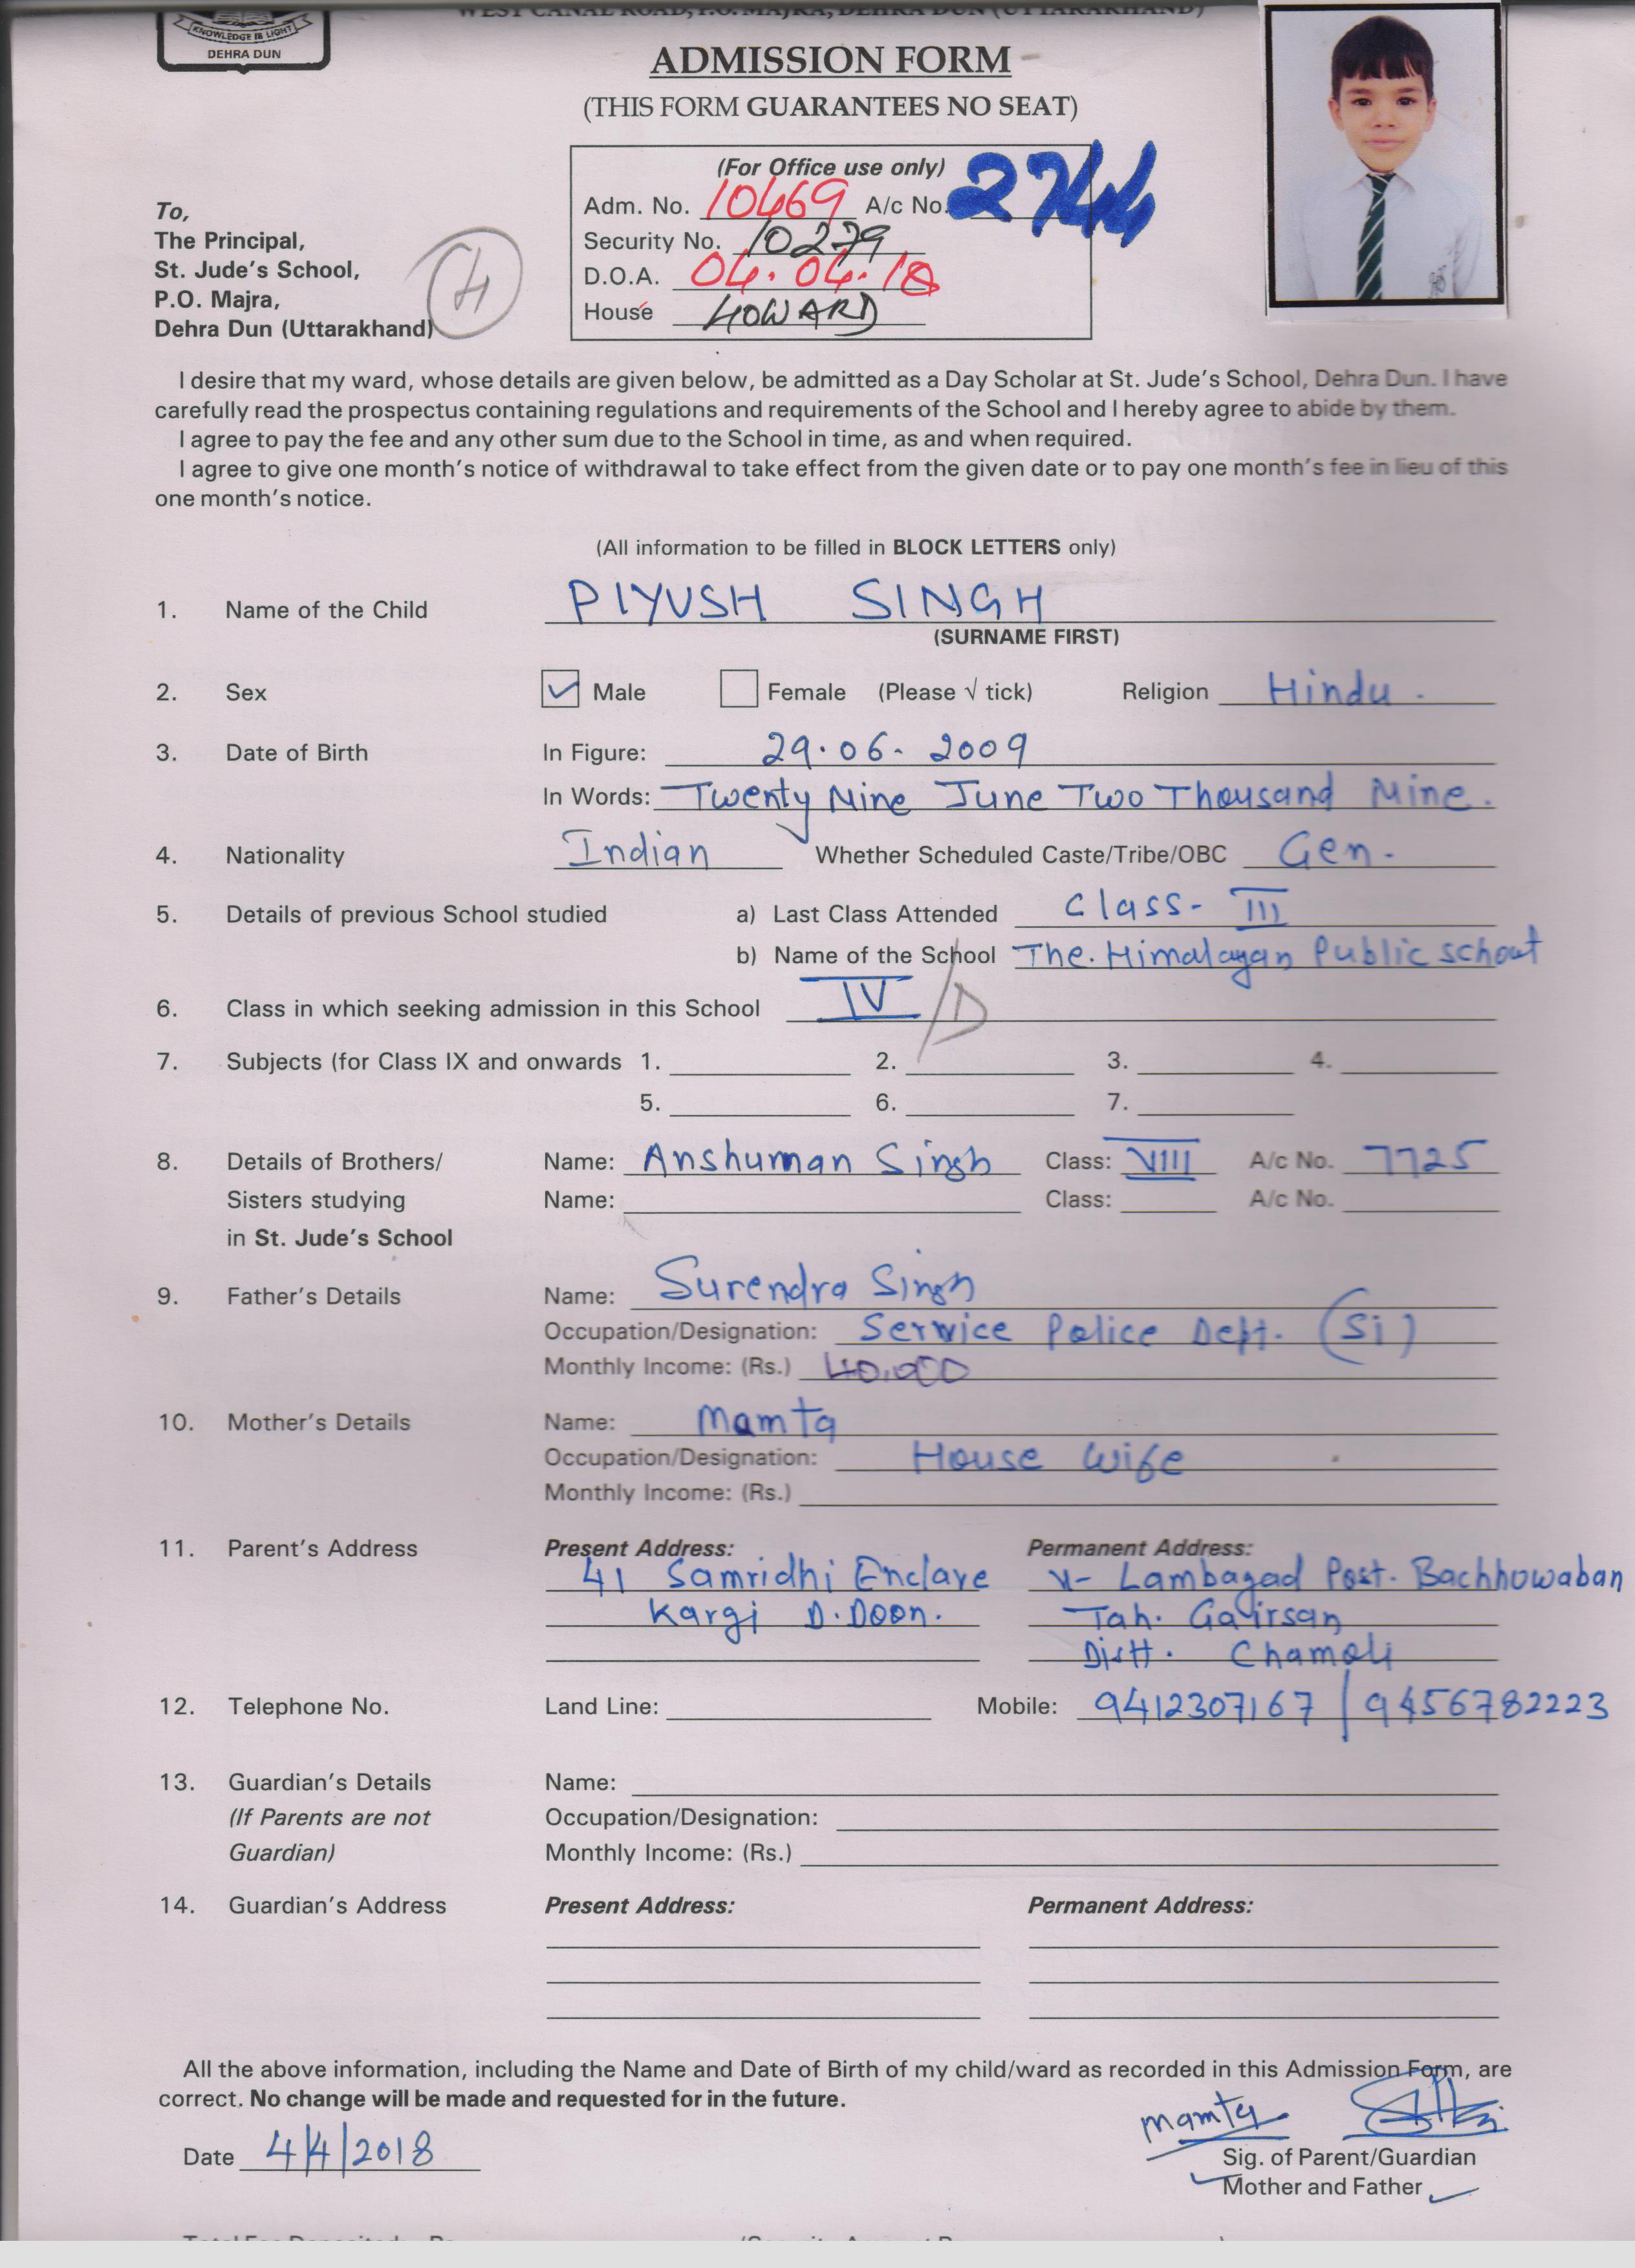 WEST CANAL ROAD, P.O. MAJRA, DEHRA DUN (UTTARAKHAND)
KNOWLEDGE IS LIGHT
DEHRA DUN
ADMISSION FORM
(THIS FORM GUARANTEES NO SEAT)
(For Office use only)
Adm. No. 10469 A/c No. 2744
Security No. 10279
D.O.A. 04.04.18
House HOWARD
To,
The Principal,
St. Jude's School,
P.O. Majra,
Dehra Dun (Uttarakhand)
H
I desire that my ward, whose details are given below, be admitted as a Day Scholar at St. Jude's School, Dehra Dun. I have
carefully read the prospectus containing regulations and requirements of the School and I hereby agree to abide by them.
I agree to pay the fee and any other sum due to the School in time, as and when required.
I agree to give one month's notice of withdrawal to take effect from the given date or to pay one month's fee in lieu of this
one month's notice.
(All information to be filled in BLOCK LETTERS only)
1. Name of the Child PIYUSH SINGH
(SURNAME FIRST)
2. Sex ✓ Male Female (Please √ tick) Religion Hindu.
3. Date of Birth In Figure: 29.06.2009
In Words: Twenty Nine June Two Thousand Nine.
4. Nationality Indian Whether Scheduled Caste/Tribe/OBC Gen.
5. Details of previous School studied a) Last Class Attended Class- III
b) Name of the School The. Himalayan Public school
6. Class in which seeking admission in this School IV/D
7. Subjects (for Class IX and onwards 1. 2. 3. 4.
5. 6. 7.
8. Details of Brothers/ Name: Anshuman Singh Class: VIII A/c No. 7725
Sisters studying Name: Class: A/c No.
in St. Jude's School
9. Father's Details Name: Surendra Singh
Occupation/Designation: Serwice Police Deptt. (Si)
Monthly Income: (Rs.) 40,000
10. Mother's Details Name: Mamta
Occupation/Designation: House Wife
Monthly Income: (Rs.)
11. Parent's Address Present Address: Permanent Address:
41 Samridhi Enclave V- Lambagad Post. Bachhowaban
Kargi D.Doon. Tah. Gairsan
Distt. Chamoli
12. Telephone No. Land Line: Mobile: 9412307167 / 9456782223
13. Guardian's Details Name:
(If Parents are not Occupation/Designation:
Guardian) Monthly Income: (Rs.)
14. Guardian's Address Present Address: Permanent Address:
All the above information, including the Name and Date of Birth of my child/ward as recorded in this Admission Form, are
correct. No change will be made and requested for in the future.
Mamta
Date 4/4/2018
Sig. of Parent/Guardian
Mother and Father